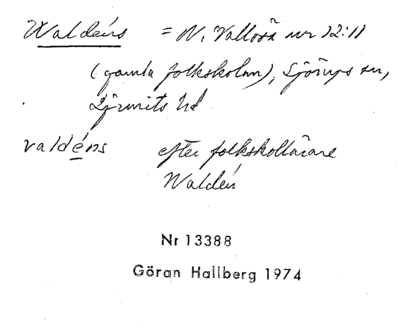 Waldéns = N. Vallösa nr 12:11
(gamla folkskolan), Sjörups sn,
Ljunits hd
valdéns efter folkskollärare
Waldén
Nr 13388
Göran Hallberg 1974